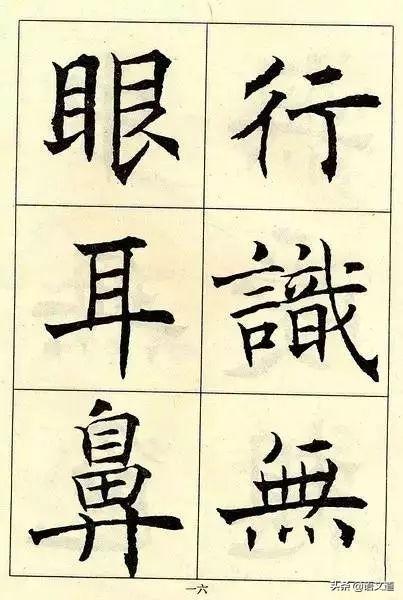 行識無
眼耳鼻
一六
头条@语文道